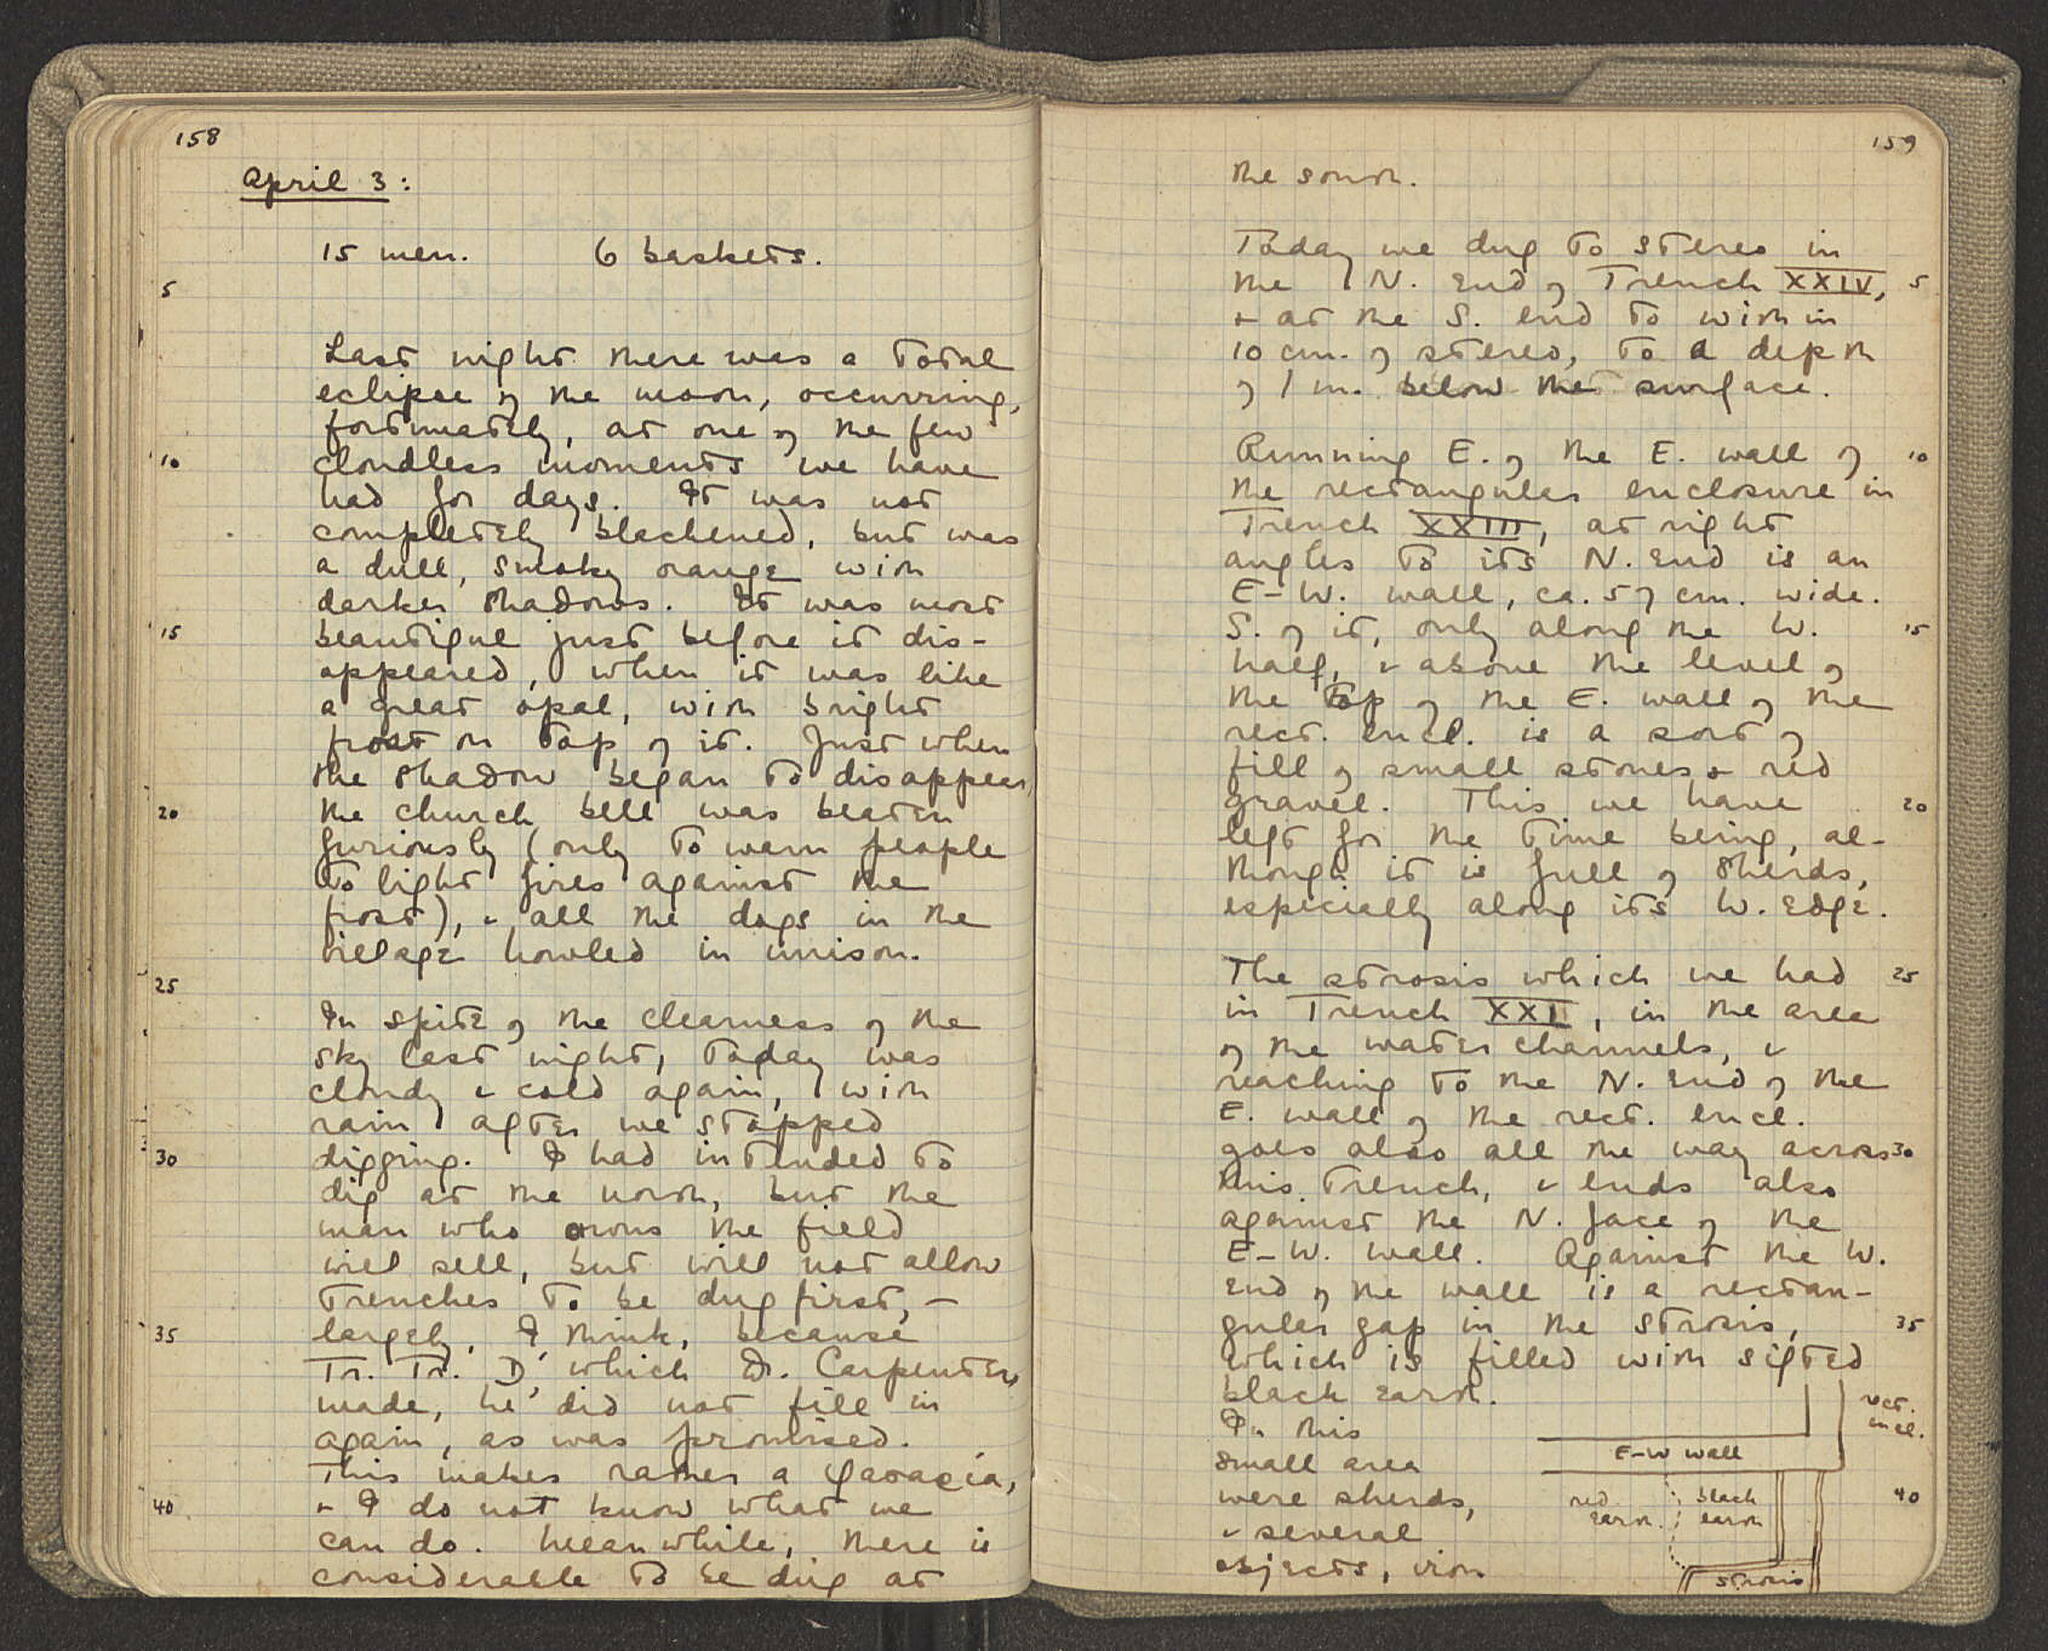 158
April 3:
15 men. 6 baskets.
5
Last night there was a total
eclipse of the moon, occurring,
fortunately, at one of the few
10 cloudless moments we have
had for days. It was not
completely blackened, but was
a dull, smoky orange with
darker shadows. It was most
15 beautiful just before it dis-
appeared, when it was like
a great opal, with bright
frost on top of it. Just when
the shadow began to disappear,
20 the church bell was beaten
furiously (only to warn people
to light fires against the
frost), & all the dogs in the
village howled in unison.
25
In spite of the clearness of the
sky last night, today was
cloudy & cold again, with
rain after we stopped
30 digging. I had intended to
dig at the north, but the
man who owns the field
will sell, but will not allow
trenches to be dug first, –
35 largely, I think, because
Tr. Tr. D, which Dr. Carpenter
made, he did not fill in
again, as was promised.
This makes rather a φασαρία,
40 & I do not know what we
can do. Meanwhile, there is
considerable to be dug at
159
the south.
Today we dug to stereo in
the N. end of Trench XXIV, 5
& at the S. end to within
10 cm. of stereo, to a depth
of 1 m. below the surface.
Running E. of the E. wall of 10
the rectangular enclosure in
Trench XXIII, at right
angles to its N. end is an
E-W. wall, ca. 57 cm. wide.
S. of it, only along the W. 15
half, & above the level of
the top of the E. wall of the
rect. encl. is a sort of
fill of small stones & red
gravel. This we have 20
left for the time being, al-
though it is full of sherds,
especially along its W. edge.
The strosis which we had 25
in Trench XXI, in the area
of the water channels, &
reaching to the N. end of the
E. wall of the rect. encl.
goes also all the way across 30
this trench, & ends also
against the N. face of the
E-W. wall. Against the W.
end of the wall is a rectan-
gular gap in the strosis, 35
which is filled with sifted
black earth.
In this
small area
were sherds, 40
& several
objects, iron
rect.
encl.
E-W wall
red
earth.
black
earth
strosis